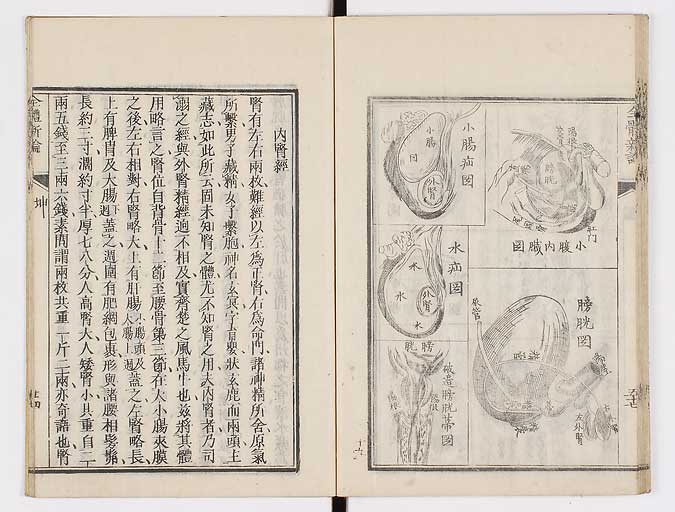 全體新論
小腸疝圖
小腸
外腎
小腹內臟圖
膀胱
肛門
水疝圖
水
水
水
外腎
膀胱圖
尿管
左外腎
膀胱
破造膀胱蒂圖
內腎經
腎有左右兩枚難經以左為正腎右為命門諸神精所舍原氣
所繫男子藏精女子繫胞神名玄冥字育嬰狀玄鹿而兩頭主
藏志如此所云固未知腎之體尤不知腎之用夫內腎者乃司
溺之經與外腎精經逈不相及實齊楚之風馬牛也茲將其體
用略言之腎位自背骨十二節至腰骨第三節在大小腸夾膜
之後左右相對右腎略大上有肝腸小腸頭及大腸上週蓋之左腎略長
上有脾胃及大腸下週蓋之週圍有肥網包裹形與諸腰相髣髴
長約三寸濶約寸半厚七八分人高腎大人矮腎小其重自二
兩五錢至三兩六錢素問謂兩枚共重一斤二兩亦奇譎也腎
全體新論
坤